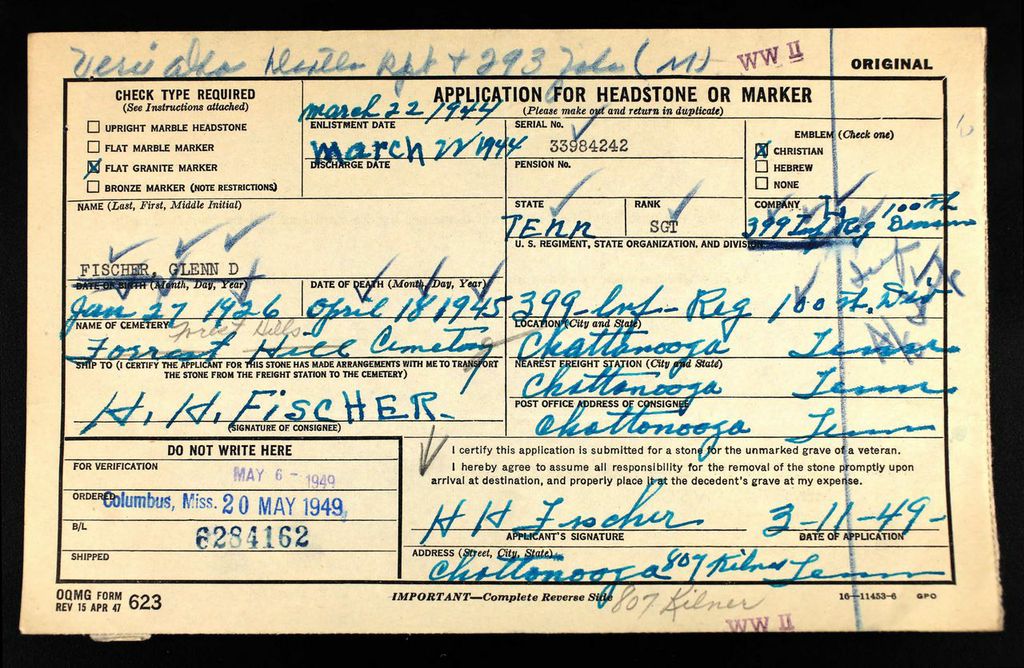 WW II
ORIGINAL
CHECK TYPE REQUIRED
(See Instructions attached)
UPRIGHT MARBLE HEADSTONE
FLAT MARBLE MARKER
FLAT GRANITE MARKER
BRONZE MARKER (NOTE RESTRICTIONS)
march 22 1944
ENLISTMENT DATE
March 22 1944
DISCHARGE DATE
APPLICATION FOR HEADSTONE OR MARKER
(Please make out and return in duplicate)
SERIAL No.
33984242
PENSION No.
EMBLEM (Check one)
CHRISTIAN
HEBREW
NONE
NAME (Last, First, Middle Initial)
FISCHER, GLENN D
STATE
TENN
RANK
SGT
COMPANY
399 Inf Reg 100th Division
U. S. REGIMENT, STATE ORGANIZATION, AND DIVISION
399-Inf- Reg 100 th. Div
DATE OF BIRTH (Month, Day, Year)
Jan 27 1926
DATE OF DEATH (Month, Day, Year)
April 18 1945
NAME OF CEMETERY
Forest Hills
Forrest Hill Cemetery
LOCATION (City and State)
Chattanooga Tenn
SHIP TO (I CERTIFY THE APPLICANT FOR THIS STONE HAS MADE ARRANGEMENTS WITH ME TO TRANSPORT
THE STONE FROM THE FREIGHT STATION TO THE CEMETERY)
H. H. FISCHER.
(SIGNATURE OF CONSIGNEE)
NEAREST FREIGHT STATION (City and State)
Chattanooga Tenn
POST OFFICE ADDRESS OF CONSIGNEE
Chattonooga Tenn
DO NOT WRITE HERE
FOR VERIFICATION
MAY 6 - 1949
ORDERED
Columbus, Miss. 20 MAY 1949
B/L
6284162
SHIPPED
I certify this application is submitted for a stone for the unmarked grave of a veteran.
I hereby agree to assume all responsibility for the removal of the stone promptly upon
arrival at destination, and properly place it at the decedent's grave at my expense.
H H Fischer 3-11-49-
APPLICANT'S SIGNATURE
DATE OF APPLICATION
ADDRESS (Street, City, State)
Chattonooga 807 Kilner Tenn
OQMG FORM
REV 15 APR 47 623
IMPORTANT—Complete Reverse Side
807 Kilner
16—11453-6 GPO
WW II